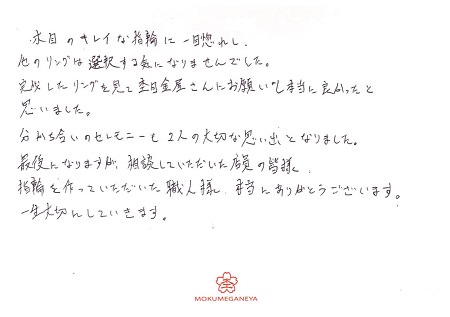 木目のキレイな指輪に一目惚れし、
他のリングは選択する気になりませんでした。
完成したリングを見て杢目金屋さんにお願いし本当に良かったと
思いました。
分かち合いのセレモニーも2人の大切な思い出となりました。
最後になりますが、相談していただいた店員の皆様、
指輪を作っていただいた職人様、本当にありがとうございます。
一生大切にしていきます。
MOKUMEGANEYA